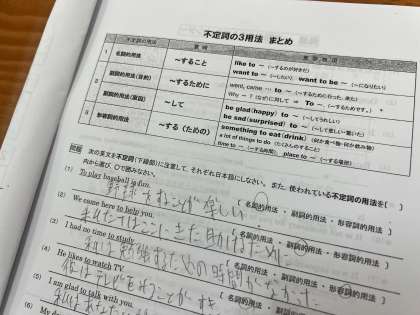 不定詞の3用法 まとめ
不定詞の用法 意味 重要表現
1 名詞的用法 ～すること like to ～（～するのが好きだ）
want to ～（～したい） want to be ～（～になりたい）
2 副詞的用法(目的) ～するために went, came … to ～（～するために行った、来た）
Why ～？（なぜ）に対して ⇒ To ～.（～するためです。）
副詞的用法(原因) ～して be glad(happy) to ～（～してうれしい）
be sad(surprised) to ～（～して悲しい・驚いた）
3 形容詞的用法 ～する（ための） something to eat(drink)（何か食べ物・何か飲み物）
a lot of things to do（たくさんのすること）
time to ～（～する時間） place to ～（～する場所）
問題 次の英文を不定詞(下線部)に注意して、それぞれ日本語にしなさい。また、使われている不定詞の用法を［
内から選び、○で囲みなさい。
(1) To play baseball is fun.
野球をすることが楽しい
［ 名詞的用法 ・ 副詞的用法 ・ 形容詞的用法
(2) We came here to help you.
［ 名詞的用法 ・ 副詞的用法 ・ 形容詞的用法
(3) I had no time to study
私は勉強するための時間がなかった
［ 名詞的用法 ・ 副詞的用法 ・
(4) He likes to watch TV.
彼はテレビを見ることがすき
(5) I am glad to talk with you.
(6) My